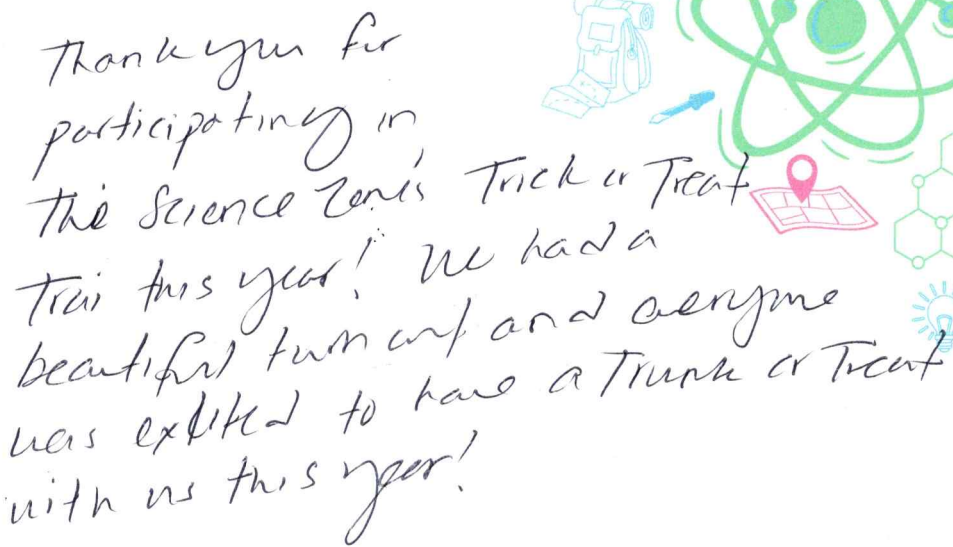 Thank you for
participating in
The Science Zone's Trick or Treat
Trai this year! We had a
beautiful turn out and everyone
was excited to have a Trunk or Treat
with us this year!